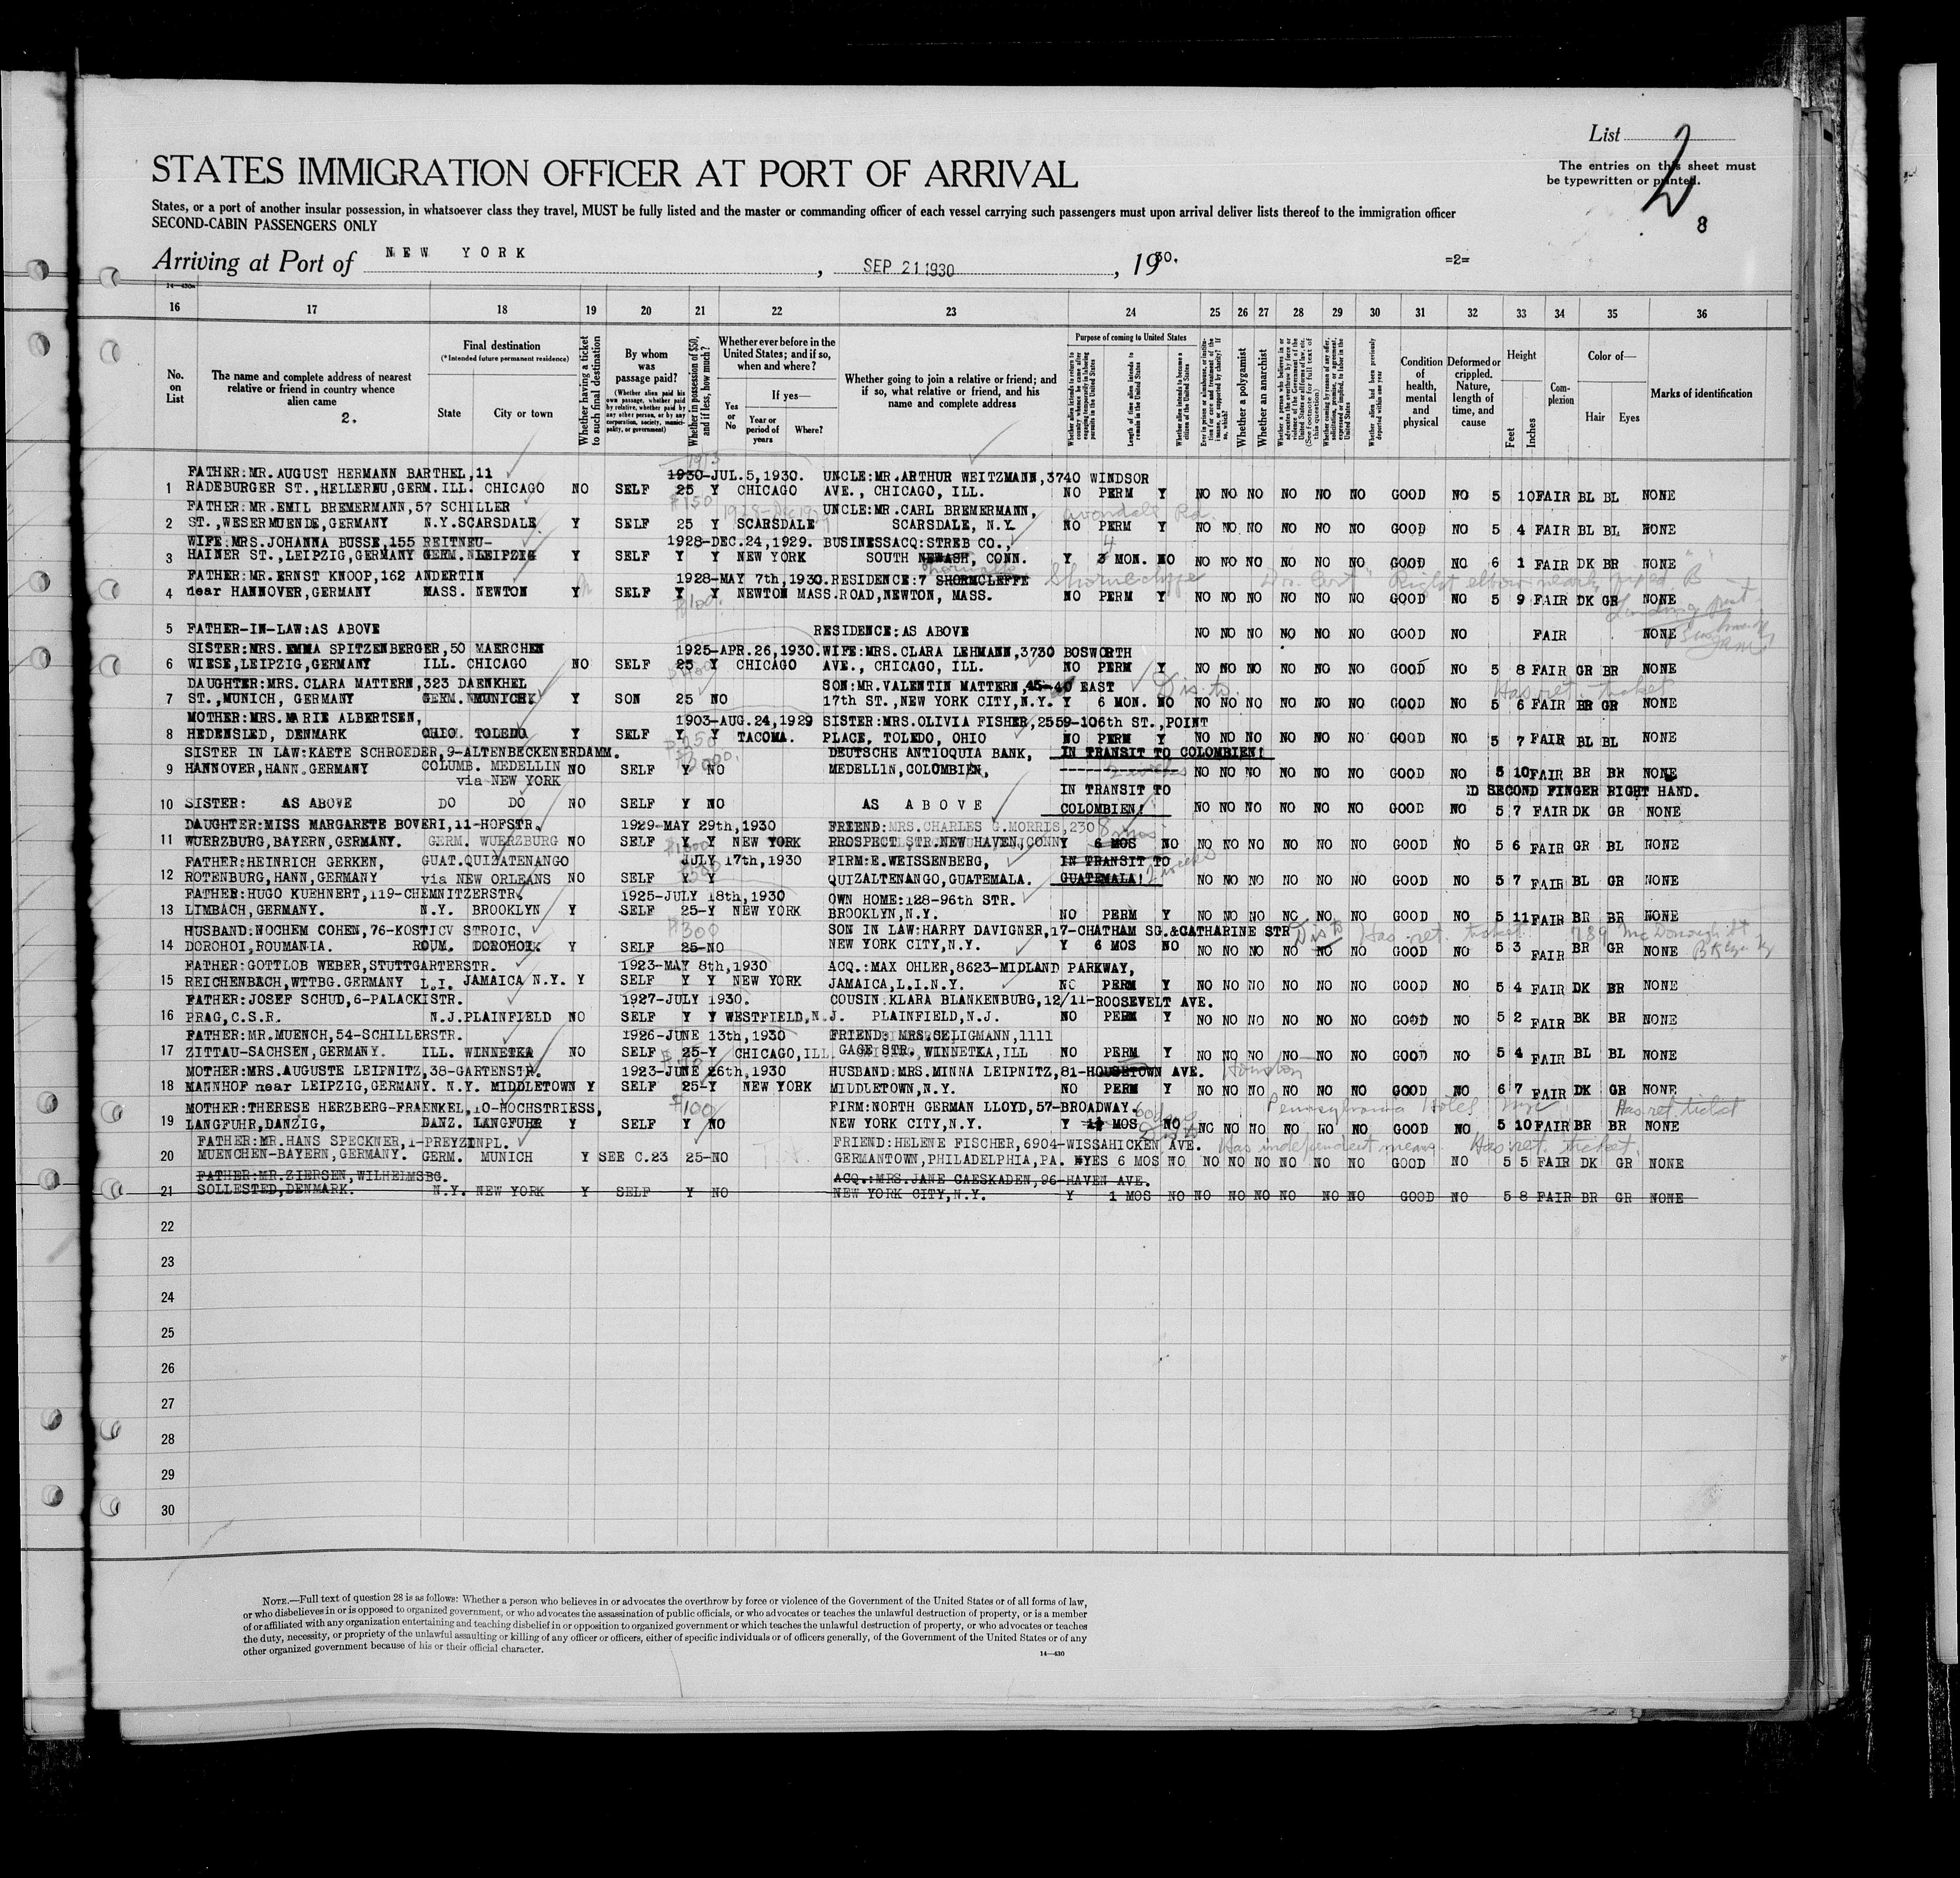 List 2
The entries on this sheet must
be typewritten or printed.
8
STATES IMMIGRATION OFFICER AT PORT OF ARRIVAL
States, or a port of another insular possession, in whatsoever class they travel, MUST be fully listed and the master or commanding officer of each vessel carrying such passengers must upon arrival deliver lists thereof to the immigration officer
SECOND-CABIN PASSENGERS ONLY
Arriving at Port of NEW YORK, SEP 21 1930, 1930. =2=
14—430
16 17 18 19 20 21 22 23 24 25 26 27 28 29 30 31 32 33 34 35 36
No. on List
The name and complete address of nearest relative or friend in country whence alien came
2.
Final destination
(*Intended future permanent residence)
State
City or town
Whether having a ticket to such final destination
By whom was passage paid?
(Whether alien paid his own passage, whether paid by relative, whether paid by any other person, or by any corporation, society, municipality, or government)
Whether in possession of $50, and if less, how much?
Whether ever before in the United States; and if so, when and where?
Yes or No
If yes—
Year or period of years
Where?
Whether going to join a relative or friend; and if so, what relative or friend, and his name and complete address
Purpose of coming to United States
Whether alien intends to return to country whence he came after engaging temporarily in laboring pursuits in the United States
Length of time alien intends to remain in the United States
Whether alien intends to become a citizen of the United States
Whether a polygamist
Whether an anarchist
Whether alien had been previously deported within one year
Condition of health, mental and physical
Deformed or crippled. Nature, length of time, and cause
Height
Feet
Inches
Complexion
Color of—
Hair
Eyes
Marks of identification
FATHER:MR.AUGUST HERMANN BARTHEL,11 1913 1930-JUL.5,1930. UNCLE:MR.ARTHUR WEITZMANN,3740 WINDSOR
1 RADEBURGER ST.,HELLERNU,GERM. ILL. CHICAGO NO SELF 25 Y CHICAGO AVE., CHICAGO, ILL. NO PERM Y NO NO NO NO NO NO GOOD NO 5 10 FAIR BL BL NONE
FATHER:MR.EMIL BREMERMANN,57 SCHILLER $150 UNCLE:MR.CARL BREMERMANN, Avondale Rd.
2 ST.,WESERMUENDE,GERMANY N.Y.SCARSDALE Y SELF 25 Y SCARSDALE SCARSDALE, N.Y. NO PERM Y NO NO NO NO NO NO GOOD NO 5 4 FAIR BL BL NONE
WIFE:MRS.JOHANNA BUSSE,155 REITNEU- 1928-DEC.24,1929. BUSINESSACQ:STREB CO., 4
3 HAINER ST.,LEIPZIG,GERMANY GERM.NLEIPZIG Y SELF Y Y NEW YORK SOUTH NEWASH, CONN. Y 3 MON. NO NO NO NO NO NO NO GOOD NO 6 1 FAIR DK BR NONE
FATHER:MR.ERNST KNOOP,162 ANDERTIN 1928-MAY 7th,1930.RESIDENCE:7 SHORMCLEFFE
4 near HANNOVER,GERMANY MASS. NEWTON Y SELF Y Y NEWTON MASS.ROAD,NEWTON, MASS. NO PERM Y NO NO NO NO NO NO GOOD NO 5 9 FAIR DK GR NONE
$100.
5 FATHER-IN-LAW:AS ABOVE RESIDENCE:AS ABOVE NO NO NO NO NO NO GOOD NO FAIR NONE
SISTER:MRS.EMMA SPITZENBERGER,50 MAERCHEN 1925-APR.26,1930.WIFE:MRS.CLARA LEHMANN,3730 BOSWORTH
6 WIESE,LEIPZIG,GERMANY ILL. CHICAGO NO SELF 25 Y CHICAGO AVE., CHICAGO, ILL. NO PERM Y NO NO NO NO NO NO GOOD NO 5 8 FAIR GR BR NONE
DAUGHTER:MRS.CLARA MATTERN,323 DAENKHEL SON:MR.VALENTIN MATTERN,45-40 EAST Has ret. ticket
7 ST.,MUNICH, GERMANY GERM.NMUNICHK Y SON 25 NO 17th ST.,NEW YORK CITY,N.Y. Y 6 MON. NO NO NO NO NO NO NO GOOD NO 5 6 FAIR BR GR NONE
MOTHER:MRS.MARIE ALBERTSEN, 1903-AUG.24,1929 SISTER:MRS.OLIVIA FISHER,2559-106th ST.,POINT
8 HEDENSLED, DENMARK OHIO. TOLEDO Y SELF Y Y TACOMA. PLACE, TOLEDO, OHIO NO PERM Y NO NO NO NO NO NO GOOD NO 5 7 FAIR BL BL NONE
SISTER IN LAW:KAETE SCHROEDER,9-ALTENBECKENERDAMM. DEUTSCHE ANTIOQUIA BANK, IN TRANSIT TO COLOMBIEN!
9 HANNOVER,HANN.GERMANY COLUMB. MEDELLIN NO SELF Y NO MEDELLIN,COLOMBIEN, 2 weeks NO NO NO NO NO NO GOOD NO 5 10 FAIR BR BR NONE
via NEW YORK IN TRANSIT TO D SECOND FINGER RIGHT HAND.
10 SISTER: AS ABOVE DO DO NO SELF Y NO AS ABOVE COLOMBIEN! NO NO NO NO NO NO GOOD NO 5 7 FAIR DK GR NONE
DAUGHTER:MISS MARGARETE BOVERI,11-HOFSTR. 1929-MAY 29th,1930 FRIEND:MRS.CHARLES G.MORRIS,230 8 mos
11 WUERZBURG,BAYERN,GERMANY. GERM. WUERZBURG NO SELF Y Y NEW YORK PROSPECT STR.NEW HAVEN,CONN Y 6 MOS NO NO NO NO NO NO NO GOOD NO 5 6 FAIR GR BL NONE
FATHER:HEINRICH GERKEN, GUAT.QUIZATENANGO JULY 17th,1930 FIRM:E.WEISSENBERG, IN TRANSIT TO 2 weeks
12 ROTENBURG,HANN,GERMANY via NEW ORLEANS NO SELF Y Y QUIZALTENANGO,GUATEMALA. GUATEMALA! NO NO NO NO NO NO GOOD NO 5 7 FAIR BL GR NONE
FATHER:HUGO KUEHNERT,119-CHEMNITZERSTR. 1925-JULY 18th,1930 OWN HOME:128-96th STR.
13 LIMBACH,GERMANY. N.Y. BROOKLYN Y SELF 25-Y NEW YORK BROOKLYN,N.Y. NO PERM Y NO NO NO NO NO NO GOOD NO 5 11 FAIR BR BR NONE
HUSBAND:NOCHEM COHEN,76-KOSTICV STROIC, $300 SON IN LAW:HARRY DAVIGNER,17-CHATHAM SG.&CATHARINE STR Has ret. ticket. 789 McDonough St
14 DOROHOI,ROUMANIA. ROUM. DOROHOIK Y SELF 25-NO NEW YORK CITY,N.Y. Y 6 MOS NO NO NO NO NO NO NO GOOD NO 5 3 FAIR BR GR NONE Bklyn Ny
FATHER:GOTTLOB WEBER,STUTTGARTERSTR. 1923-MAY 8th,1930 ACQ.:MAX OHLER,8623-MIDLAND PARKWAY,
15 REICHENBACH,WTTBG.GERMANY L.I. JAMAICA N.Y. Y SELF Y Y NEW YORK JAMAICA,L.I.N.Y. NO PERM Y NO NO NO NO NO NO GOOD NO 5 4 FAIR DK BR NONE
FATHER:JOSEF SCHUD,6-PALACKISTR. 1927-JULY 1930. COUSIN:KLARA BLANKENBURG,12/11-ROOSEVELT AVE.
16 PRAG,C.S.R. N.J.PLAINFIELD NO SELF Y Y WESTFIELD,N.J. PLAINFIELD,N.J. NO PERM Y NO NO NO NO NO NO GOOD NO 5 2 FAIR BK BR NONE
FATHER:MR.MUENCH,54-SCHILLERSTR. 1926-JUNE 13th,1930 FRIEND: MRS.SELIGMANN,1111
17 ZITTAU-SACHSEN,GERMANY. ILL. WINNETKA NO SELF 25-Y CHICAGO,ILL. GAGE STR., WINNETKA,ILL NO PERM Y NO NO NO NO NO NO GOOD NO 5 4 FAIR BL BL NONE
MOTHER:MRS.AUGUSTE LEIPNITZ,38-GARTENSTR. 1923-JUNE 26th,1930 HUSBAND:MRS.MINNA LEIPNITZ,81-HOUSETOWN AVE. Houston
18 MANNHOF near LEIPZIG,GERMANY. N.Y. MIDDLETOWN Y SELF 25-Y NEW YORK MIDDLETOWN,N.Y. NO PERM Y NO NO NO NO NO NO GOOD NO 6 7 FAIR DK GR NONE
MOTHER:THERESE HERZBERG-FRAENKEL,10-HOCHSTRIESS, $100 FIRM:NORTH GERMAN LLOYD,57-BROADWAY. 60 days Pennsylvania Hotel Nyc Has ret. ticket
19 LANGFUHR,DANZIG, DANZ. LANGFUHR Y SELF Y NO NEW YORK CITY,N.Y. Y MOS NO NO NO NO NO NO NO GOOD NO 5 10 FAIR BR BR NONE
FATHER:MR.HANS SPECKNER,1-PREYZINPL. FRIEND:HELENE FISCHER,6904-WISSAHICKEN AVE. Has independent means. Has ret. ticket.
20 MUENCHEN-BAYERN,GERMANY. GERM. MUNICH Y SEE C.23 25-NO GERMANTOWN,PHILADELPHIA,PA. YES 6 MOS NO NO NO NO NO NO NO GOOD NO 5 5 FAIR DK GR NONE
FATHER:MR.ZIERSEN,WILHELMSBG. ACQ.:MRS.JANE CAESKADEN,96-HAVEN AVE.
21 SOLLESTED,DENMARK. N.Y. NEW YORK Y SELF Y NO NEW YORK CITY,N.Y. Y 1 MOS NO NO NO NO NO NO NO GOOD NO 5 8 FAIR BR GR NONE
22
23
24
25
26
27
28
29
30
NOTE.—Full text of question 28 is as follows: Whether a person who believes in or advocates the overthrow by force or violence of the Government of the United States or of all forms of law,
or who disbelieves in or is opposed to organized government, or who advocates the assassination of public officials, or who advocates or teaches the unlawful destruction of property, or is a member
of or affiliated with any organization entertaining and teaching disbelief in or opposition to organized government or which teaches the unlawful destruction of property, or who advocates or teaches
the duty, necessity, or propriety of the unlawful assaulting or killing of any officer or officers, either of specific individuals or of officers generally, of the Government of the United States or of any
other organized government because of his or their official character.
14—430